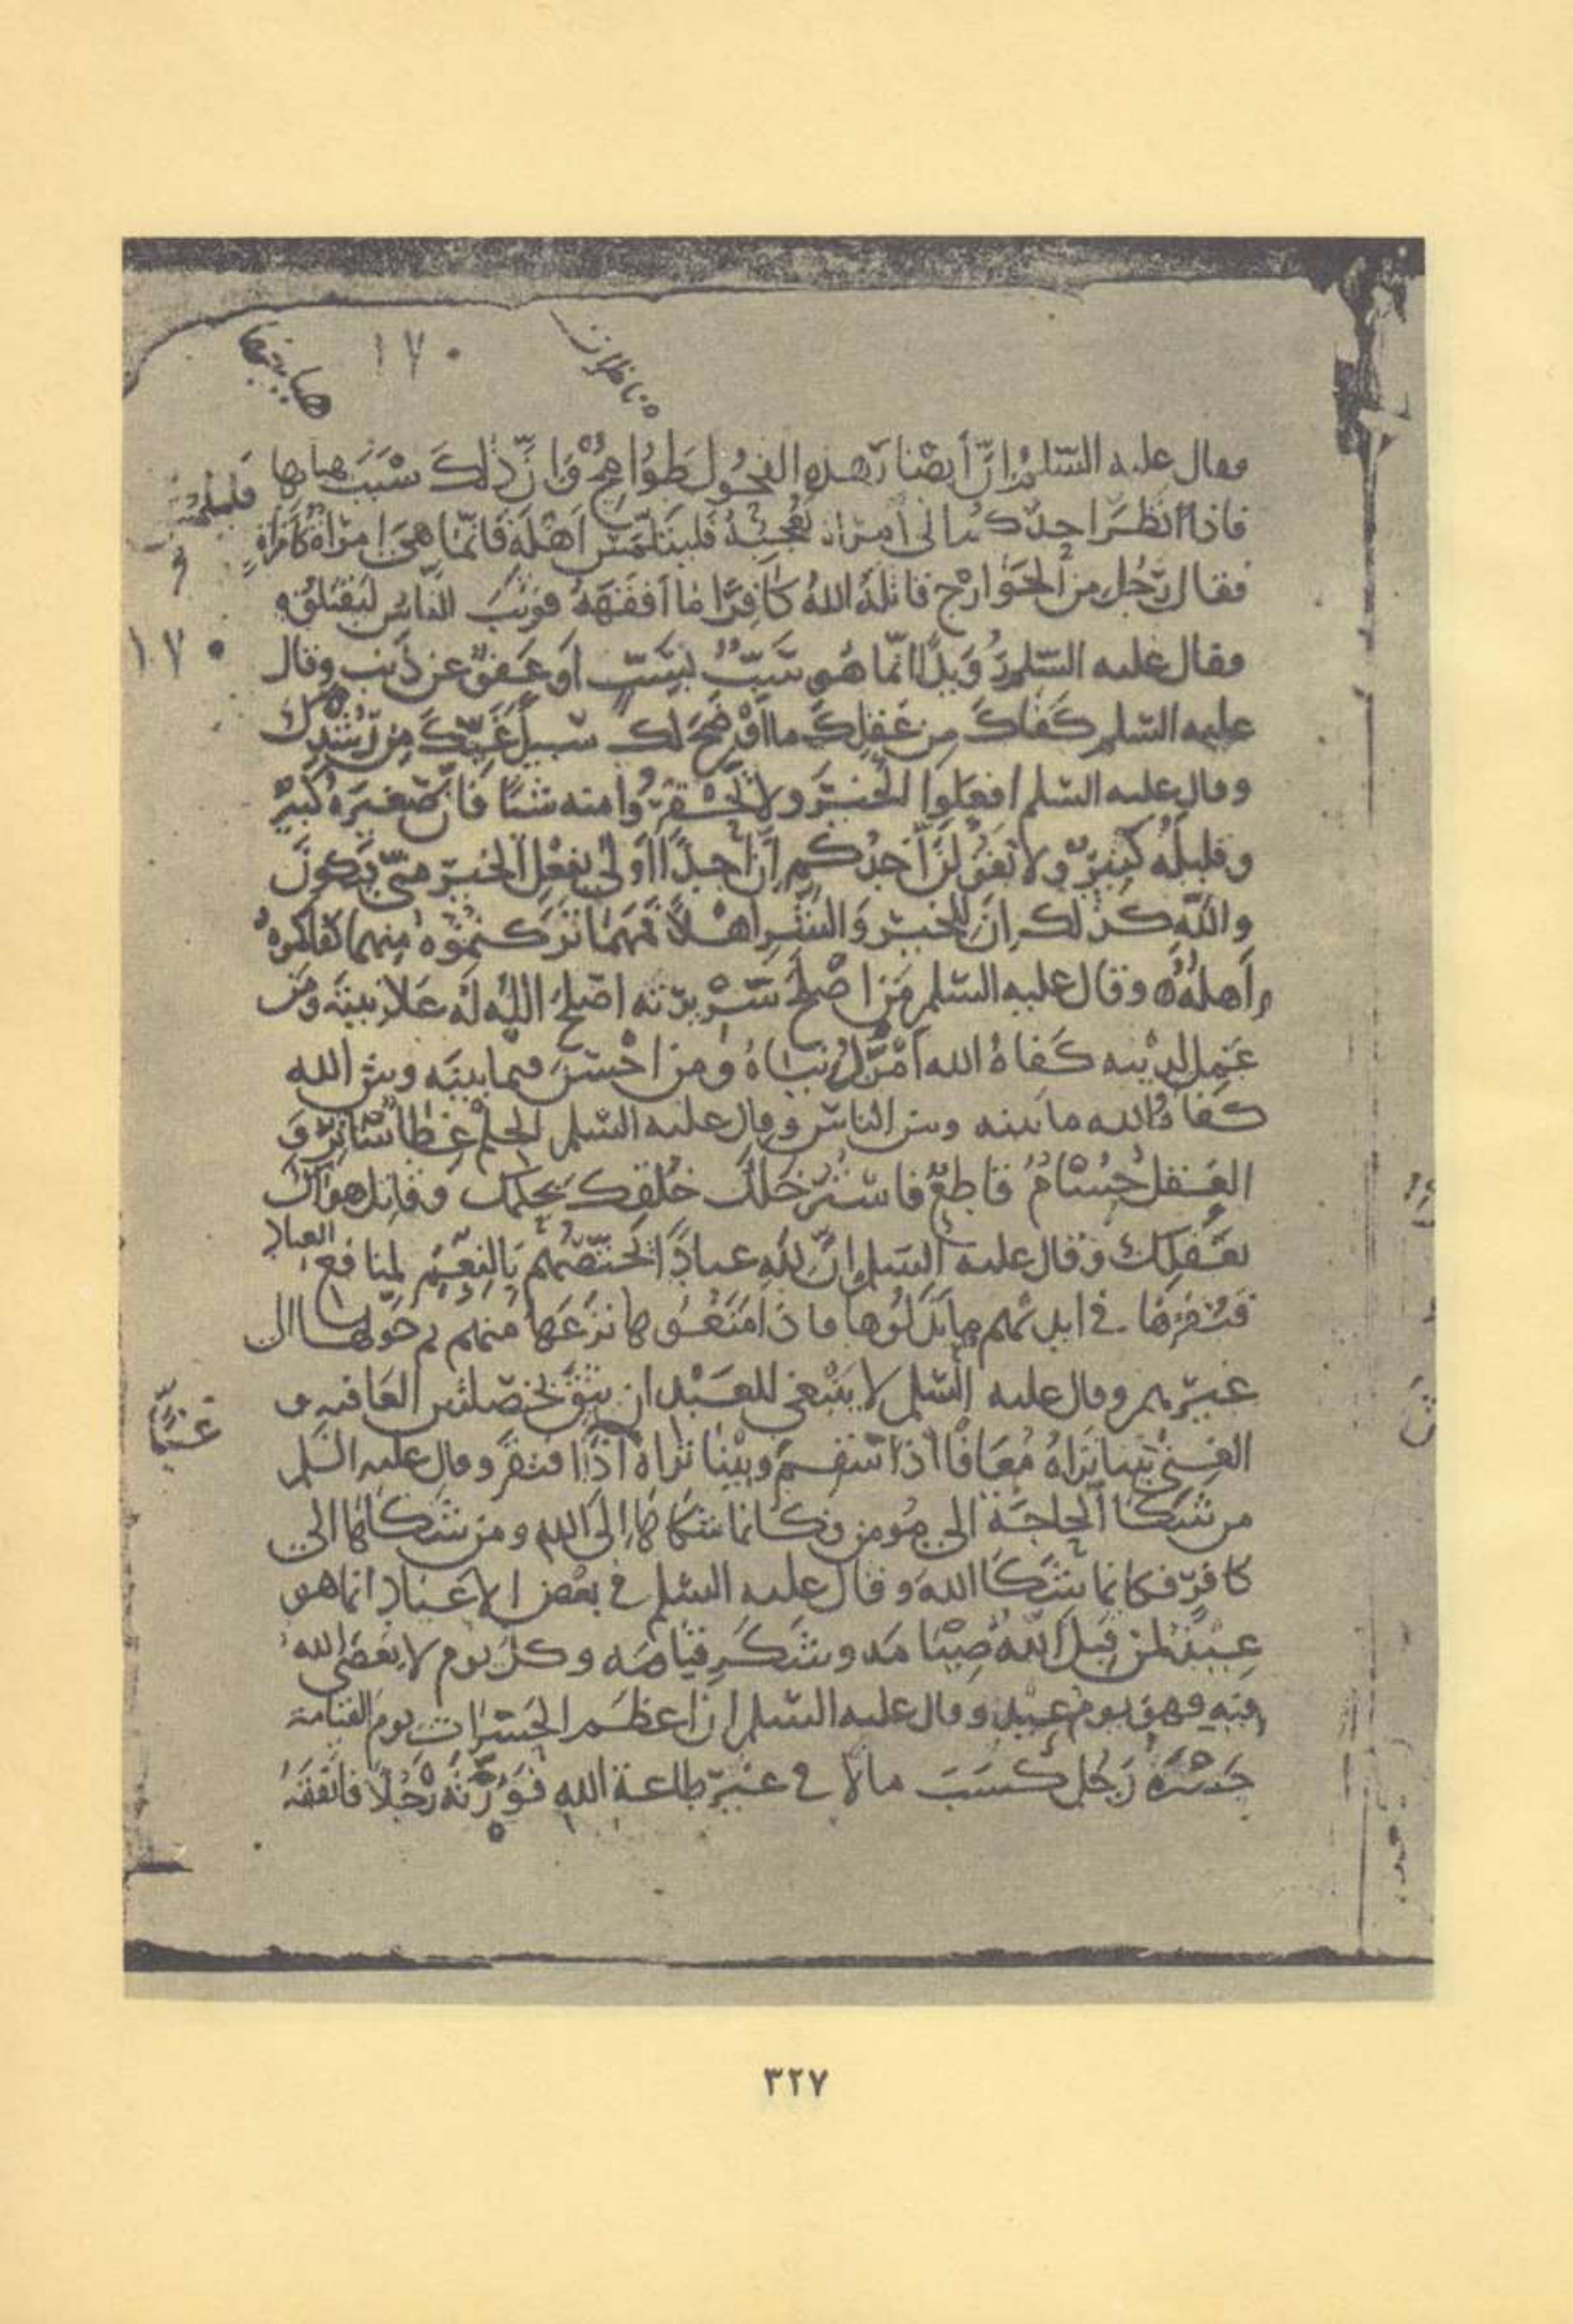 ١٧٠
فقال عليه السلم إنّ أبصار هذه الفحول طوامح وإنّ ذلك سبب هبابها
فاذا نظر احدكم الى امراة تعجبه فليتلمّس اهله فانّما هي امراة كامراة
فقال رجل من الخوارج قاتله الله كافرا ما افقهه فوثب النّاس ليقتلوه
١٧٠
فقال عليه السّلم رويدا انّما هو سبّ بسبّ او عفو عن ذنب وقال
عليه السّلم كفاك من عقلك ما اوضح لك سبيل غيّك من رشدك
وقال عليه السّلم افعلوا الخير ولا تحقروا منه شيئا فانّ صغيره كبير
وقليله كثير ولا يقولنّ احدكم انّ احدا اولى بفعل الخير منّي فيكون
والله كذلك ان للخير والشّر اهلا فمهما تركتموه منهما كفاكموه
اهله وقال عليه السّلم من اصلح سريرته اصلح الله له علانيته ومن
عمل لدينه كفاه الله امر دنياه ومن احسن فيما بينه وبين الله
كفاه الله ما بينه وبين الناس وقال عليه السّلم الحلم غطاء ساتر و
العقل حسام قاطع فاستر خلل خلقك بحلمك وقاتل هواك
بعقلك وقال عليه السّلم إنّ لله عبادا اختصّهم بالنعم لمنافع العباد
فيقرّها في ايديهم ما بذلوها فاذا منعوها نزعها منهم ثم حوّلها الى
غيرهم وقال عليه السّلم لا ينبغي للعبد ان يثق بخصلتين العافيه و
الغنى بينا تراه معافا اذا سقم وبينا تراه اذا افتقر وقال عليه السّلم
غنيّا
من شكا الحاجة الى مومن فكانما شكاها الى الله ومن شكاها الى
كافر فكانما شكا الله وقال عليه السّلم في بعض الاعياد انما هو
عيد لمن قبل الله صيامه وشكر قيامه وكل يوم لا يعصى الله
فيه فهو يوم عيد وقال عليه السّلم ان اعظم الحسرات يوم القيامة
حسرة رجل كسب مالا في غير طاعة الله فورّثه رجلا فانفقه
٣٢٧